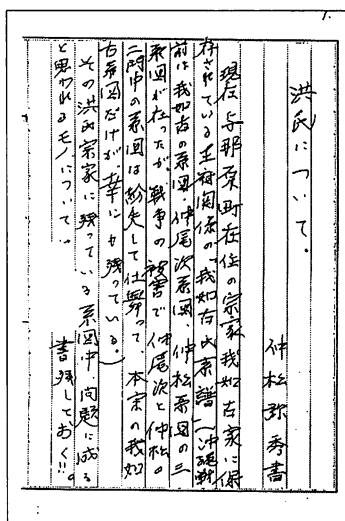 1.
洪氏について。
仲松弥秀書
現在与那原町在住の宗家我如古家に保
存されている王府関係の「我如古氏系譜」(沖縄戦
前は我如古の系図、仲尾次系図、仲松系図の三
系図が在ったが、戦争の被害で仲尾次と仲松の
二門中の系図は紛失して仕舞って、本宗の我如
古系図だけが幸にも残っている。)
その洪氏宗家に残っている系図中、問題に成る
と思われるモノについて。 書残しておく!!。